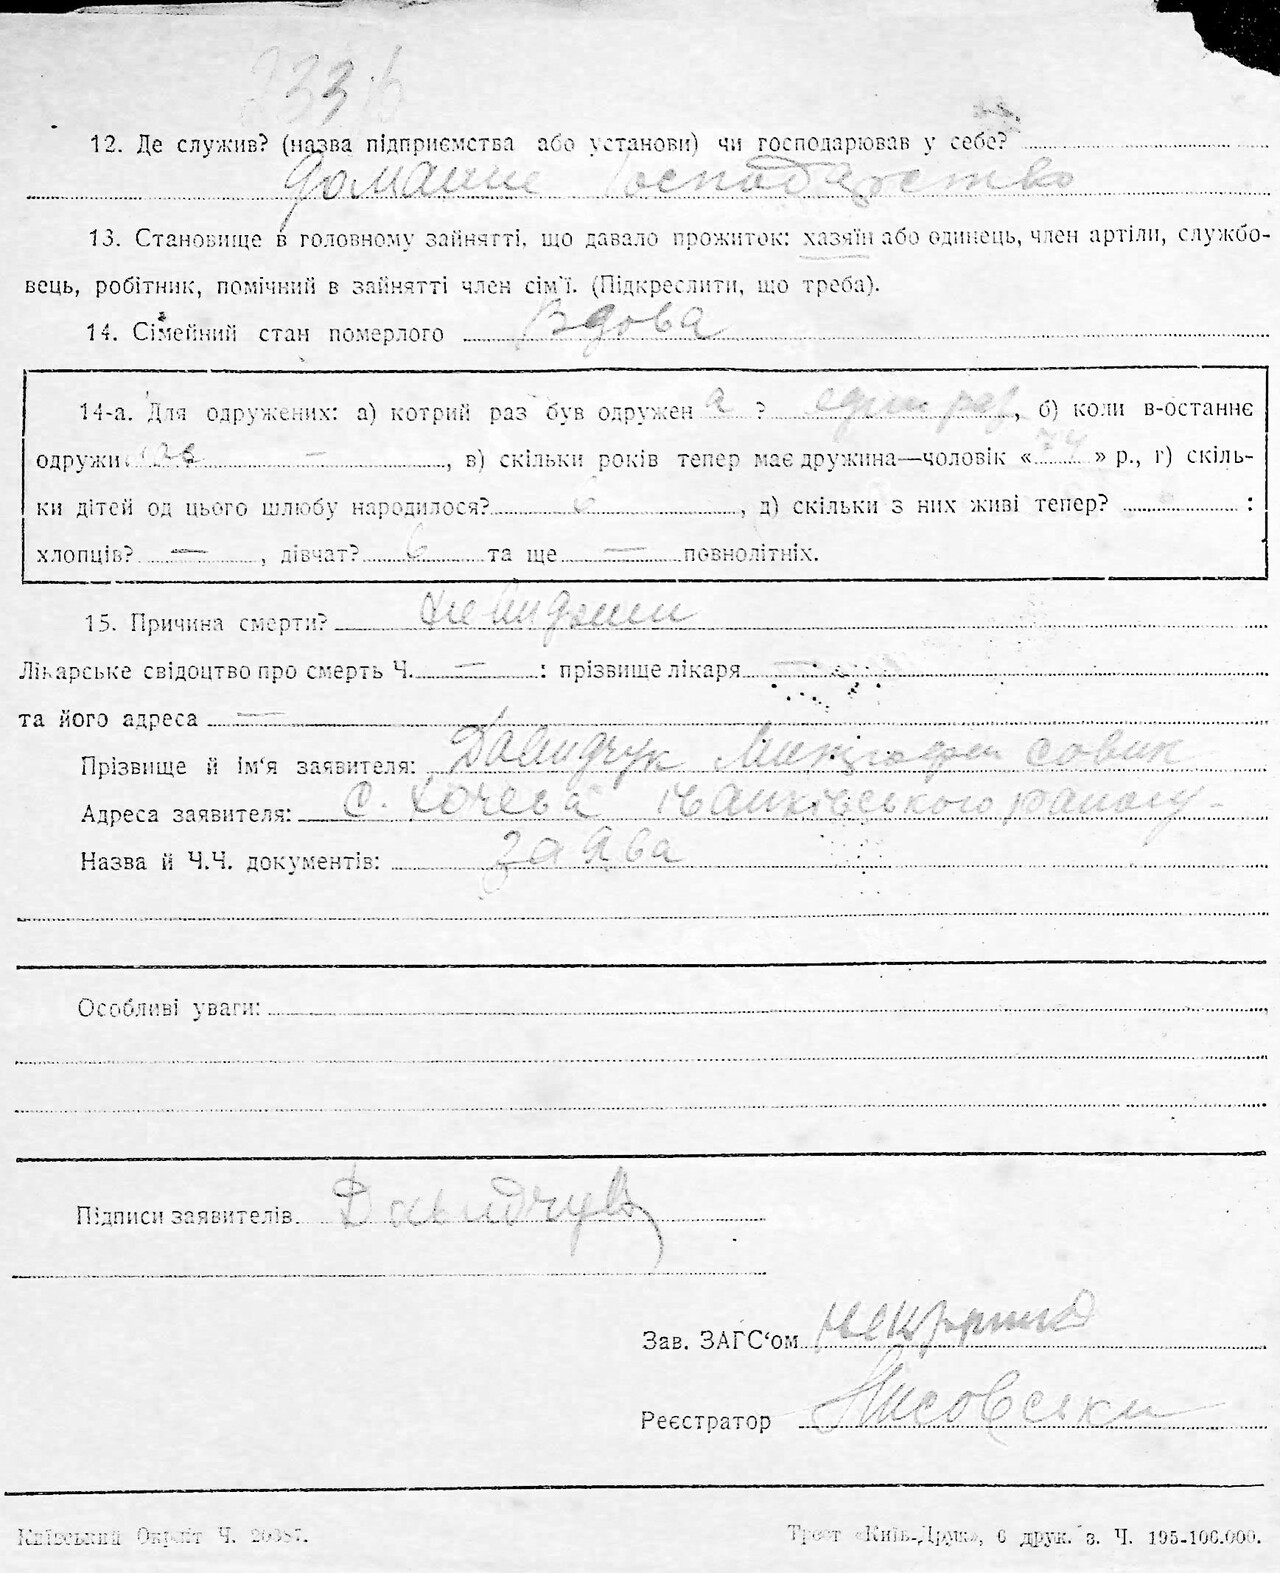 12. Де служив? (назва підприємства або установи) чи господарював у себе?
Домашне господарство
13. Становище в головному зайнятті, що давало прожиток: хазяїн або одинець, член артіли, службо-
вець, робітник, помічний в зайнятті член сім'ї. (Підкреслити, що треба).
14. Сімейний стан померлого Вдова
14-а. Для одружених: а) котрий раз був одружен а ? один раз, б) коли в-останнє
одружи — , в) скільки років тепер має дружина—чоловік «74» р., г) скіль-
ки дітей од цього шлюбу народилося? 6 , д) скільки з них живі тепер? :
хлопців? — , дівчат? 6 та ще — повнолітніх.
15. Причина смерти?
Лікарське свідоцтво про смерть Ч. — : прізвище лікаря —
та його адреса —
Прізвище й ім'я заявителя: Давидчук
Адреса заявителя: с. району
Назва й Ч.Ч. документів: заява
Особливі уваги:
Підписи заявителів. Давидчук
Зав. ЗАГС'ом
Реєстратор
Київський Окрліт Ч. 20387.
Трест «Київ-Друк», 6 друк. з. Ч. 195-100.000.